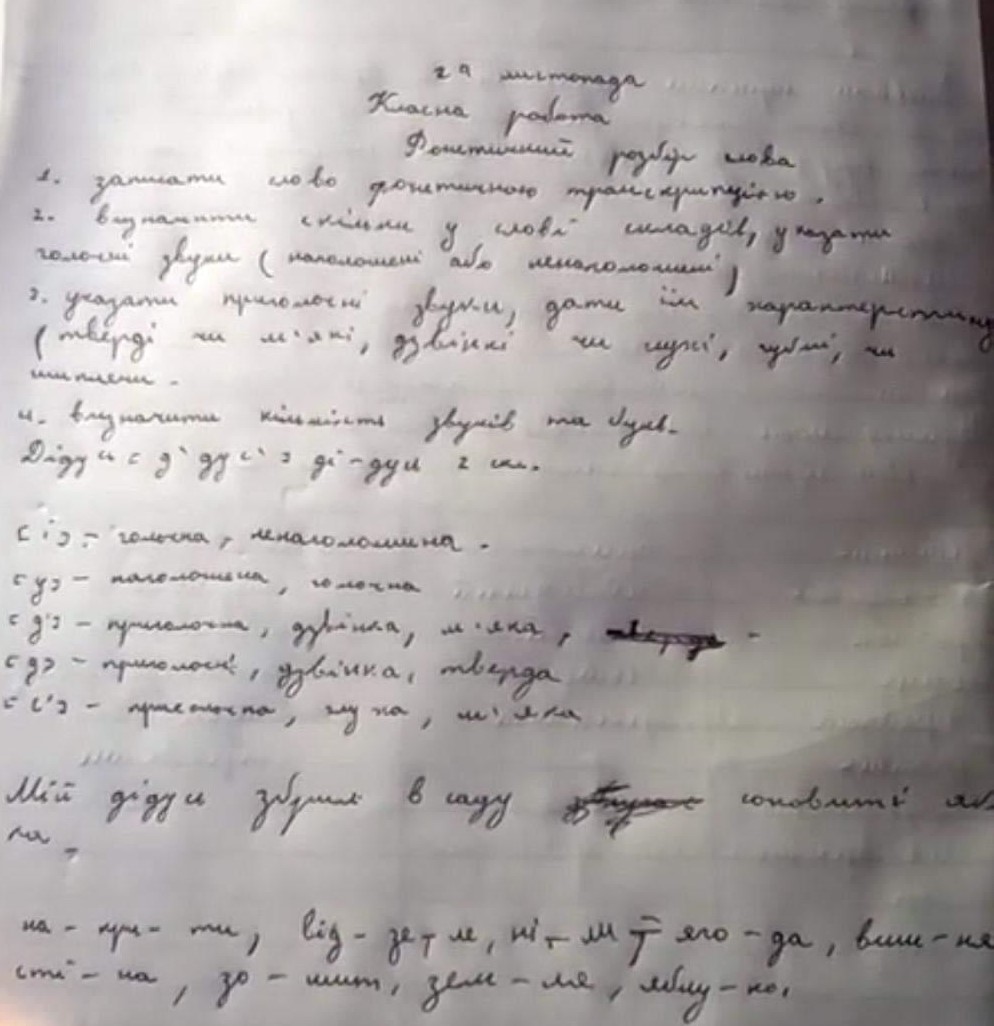 29 листопада
Класна робота
Фонетичний розбір слова
1. записати слово фонетичною транскрипцією.
2. визначити скільки у слові складів, указати
голосні звуки (наголошені або ненаголошені)
3. указати приголосні звуки, дати їм характеристику
(тверді чи м'які, дзвінкі чи глухі, чи
4. визначити кількість звуків та букв.
Дідусь [д'ідус'] ді-дусь 2 скл.
[і] - голосна, ненаголошина.
[у] - наголошена, голосна
[д'] - приголосна, дзвінка, м'яка,
[д] - приголосні, дзвінка, тверда
[с'] - приголосна, глуха, м'яка
Мій дідусь в саду соковиті
ка.
від-зе-ле, яго-да, виш-ня
сті-на, зо-шит, зем-ля, яблу-ко.